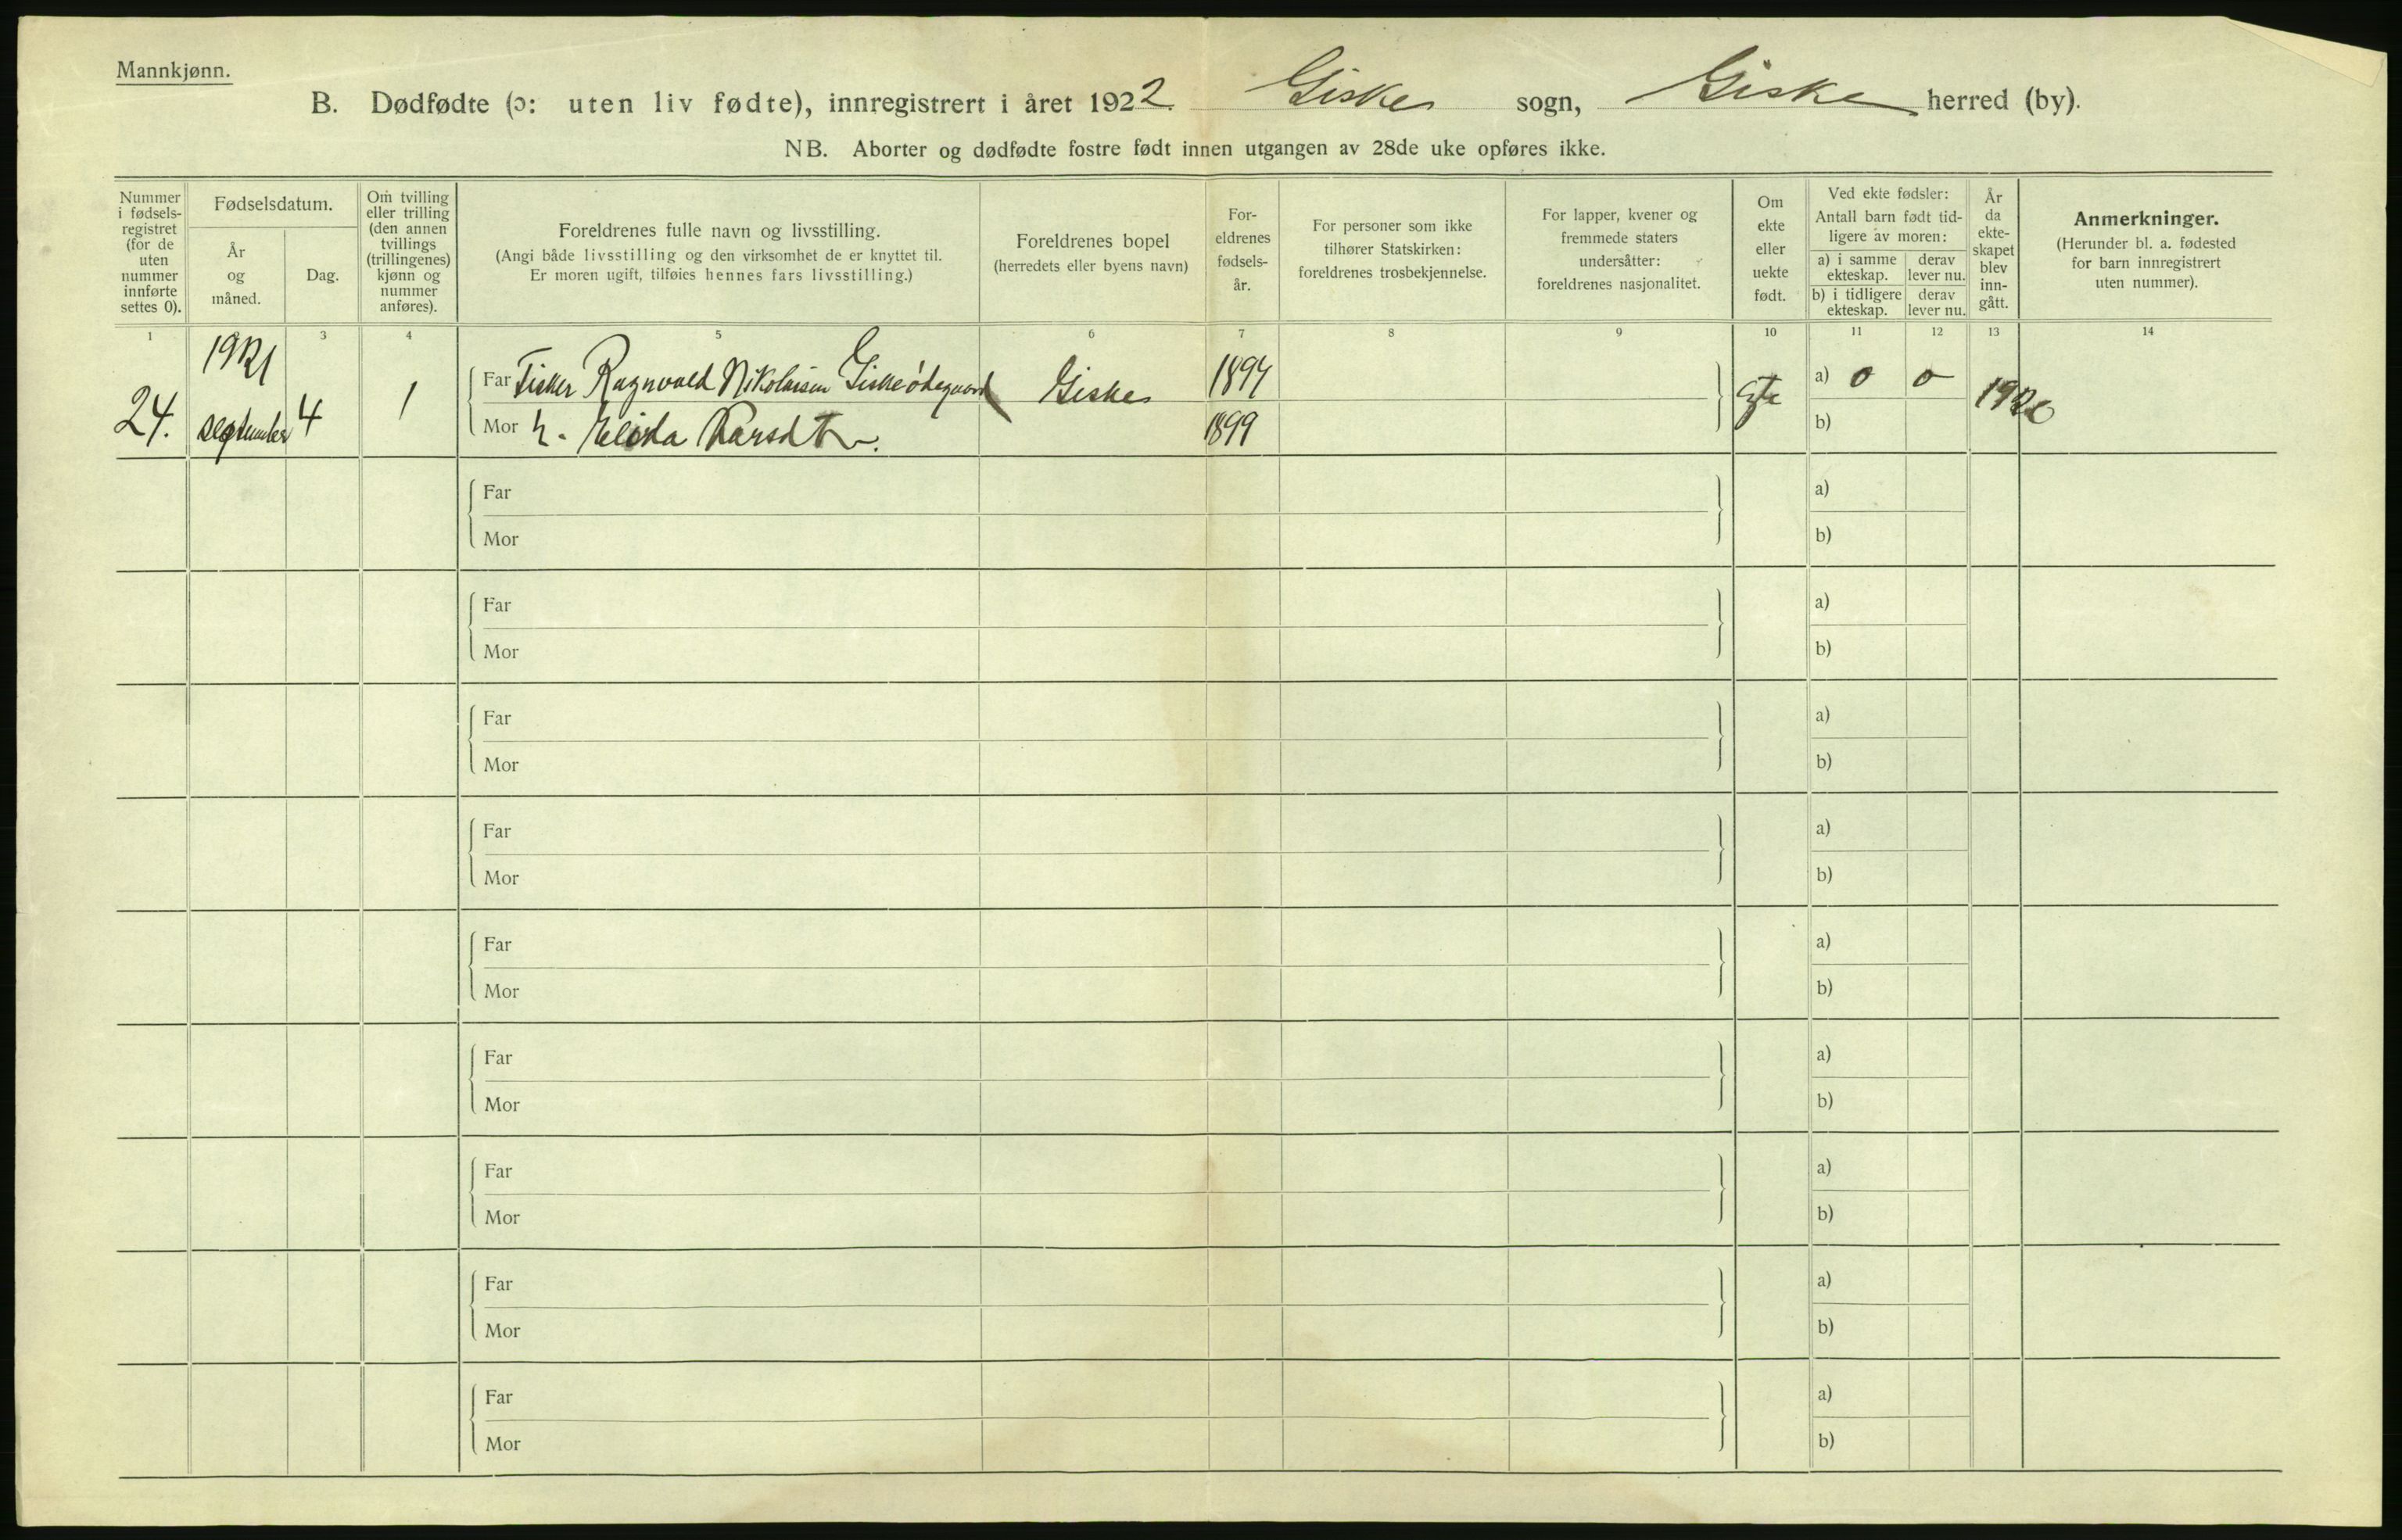 Mannkjønn.
B. Dødfødte (ɔ: uten liv fødte), innregistrert i året 1922. Giske sogn, Giske herred (by).
NB. Aborter og dødfødte fostre født innen utgangen av 28de uke opføres ikke.
Nummer
i fødsels-
registret
(for de
uten
nummer
innførte
settes 0).
Fødselsdatum.
År
og
måned.
Dag.
Om tvilling
eller trilling
(den annen
tvillings
(trillingenes)
kjønn og
nummer
anføres).
Foreldrenes fulle navn og livsstilling.
(Angi både livsstilling og den virksomhet de er knyttet til.
Er moren ugift, tilføies hennes fars livsstilling.)
Foreldrenes bopel
(herredets eller byens navn)
For-
eldrenes
fødsels-
år.
For personer som ikke
tilhører Statskirken:
foreldrenes trosbekjennelse.
For lapper, kvener og
fremmede staters
undersåtter:
foreldrenes nasjonalitet.
Om
ekte
eller
uekte
født.
Ved ekte fødsler:
Antall barn født tid-
ligere av moren:
a) i samme
ekteskap.
derav
lever nu.
b) i tidligere
ekteskap.
derav
lever nu.
År
da
ekte-
skapet
blev
inn-
gått.
Anmerkninger.
(Herunder bl. a. fødested
for barn innregistrert
uten nummer).
1 3 4 5 6 7 8 9 10 11 12 13 14
1921
24. september 4 1
Far Fisker Ragnvald Nikolaisen Giskeødegaard Giske 1894 a) 0 0 1920
Mor h. Larsdtr. 1899 b)
Far a)
Mor b)
Far a)
Mor b)
Far a)
Mor b)
Far a)
Mor b)
Far a)
Mor b)
Far a)
Mor b)
Far a)
Mor b)
Far a)
Mor b)
Far a)
Mor b)